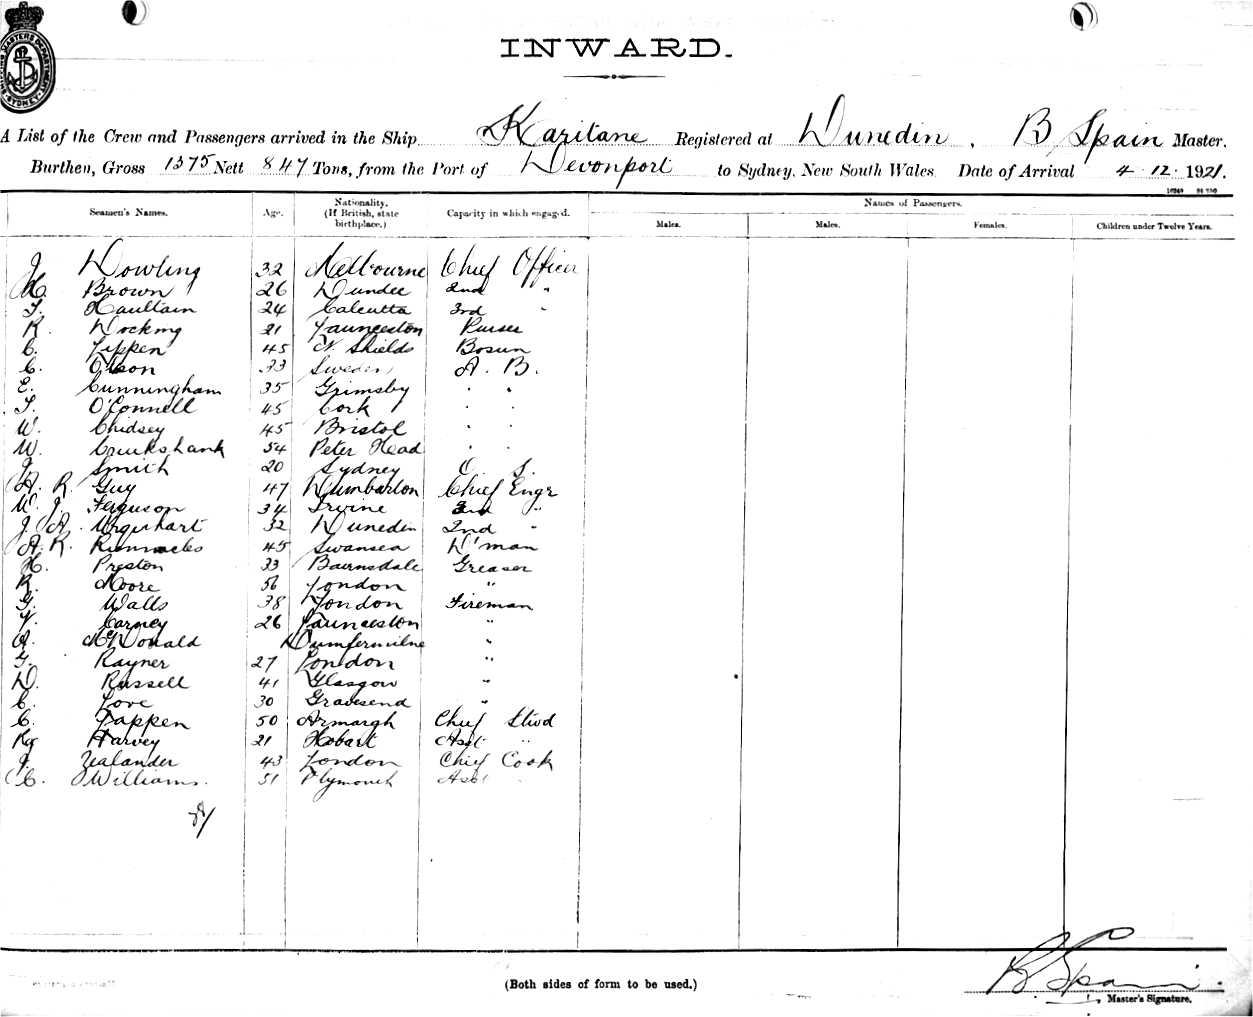 INWARD.
A List of the Crew and Passengers arrived in the Ship Karitane Registered at Dunedin. B Spain Master.
Burthen, Gross 1375 Nett 847 Tons, from the Port of Devonport to Sydney, New South Wales Date of Arrival 4.12.1921.
Seamen's Names. Age. Nationality. (If British, state birthplace.) Capacity in which engaged. Names of Passengers.
Males. Males. Females. Children under Twelve Years.
J Dowling 32 Melbourne Chief Officer
H. Brown 26 Dundee 2nd "
T. Haultain 24 Calcutta 3rd "
R. Docking 21 Launceston Purser
C. Tippen 45 N. Shields Bosun
C. Olson 33 Sweden A. B.
E. Cunningham 35 Grimsby " "
T. O'Connell 45 Cork " "
W. Chidsey 45 Bristol " "
W. Cruikshank 54 Peter Head " "
J. Smith 20 Sydney O. S.
A. R. Guy 47 Dumbarton Chief Engr
W. J. Ferguson 34 Irvine 3rd "
J. A. Urquhart 32 Dunedin 2nd "
A. R. 45 Swansea D'man
H. Preston 33 Bairnsdale Greaser
R. Moore 56 London "
G. Walls 38 London Fireman
Carney 26 Launceston "
A. McDonald Dumfermilne "
G. Rayner 27 London "
D. Russell 41 Glasgow "
C. Love 30 Gravesend "
C. Tappen 50 Armargh Chief Stwd
Harvey 21 Hobart Asst "
J. Zealander 43 London Chief Cook
C. Williams. 51 Plymouth Asst "
(Both sides of form to be used.)
B Spain
Master's Signature.